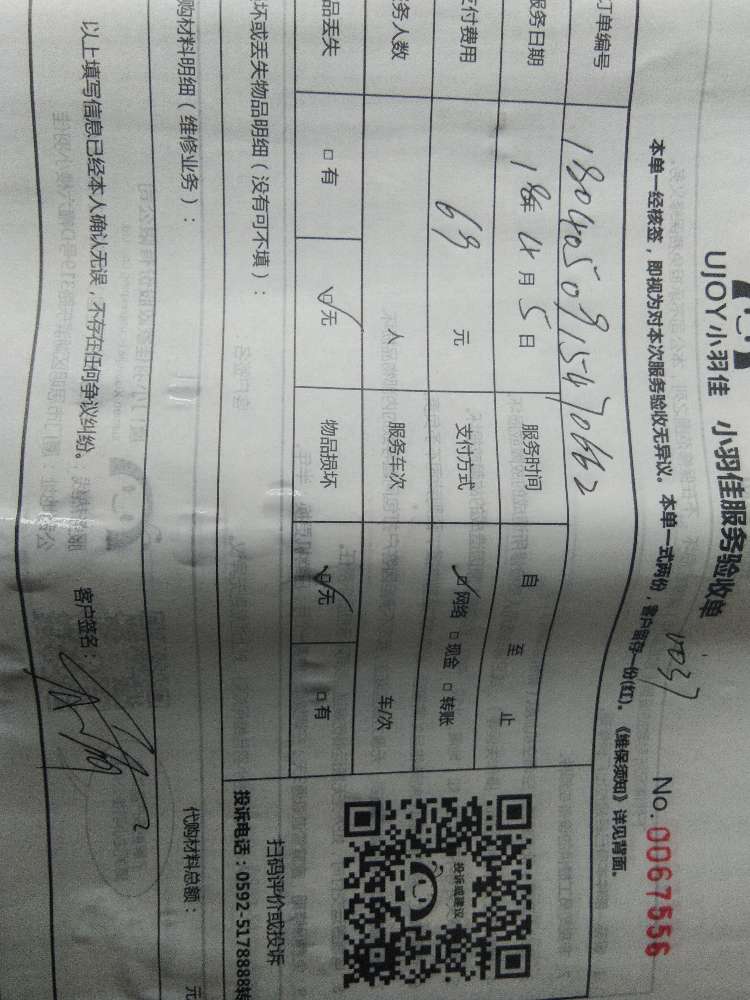 UJOY小羽佳 小羽佳服务验收单
1037 No.0067556
本单一经核签，即视为对本次服务验收无异议。本单一式两份，客户留存一份(红)。《维保须知》详见背面。
订单编号
服务日期 18年4月5日 服务时间 自 至 止
支付费用 69 元 支付方式 ☑网络 □现金 □转账
务人数 人 服务车次 车/次
品丢失 □有 ☑无 物品损坏 ☑无 □有
坏或丢失物品明细（没有可不填）：
投诉或建议
扫码评价或投诉
投诉电话：0592-5178888转
购材料明细（维修业务）： 代购材料总额： 元
以上填写信息已经本人确认无误，不存在任何争议纠纷。 客户签名：